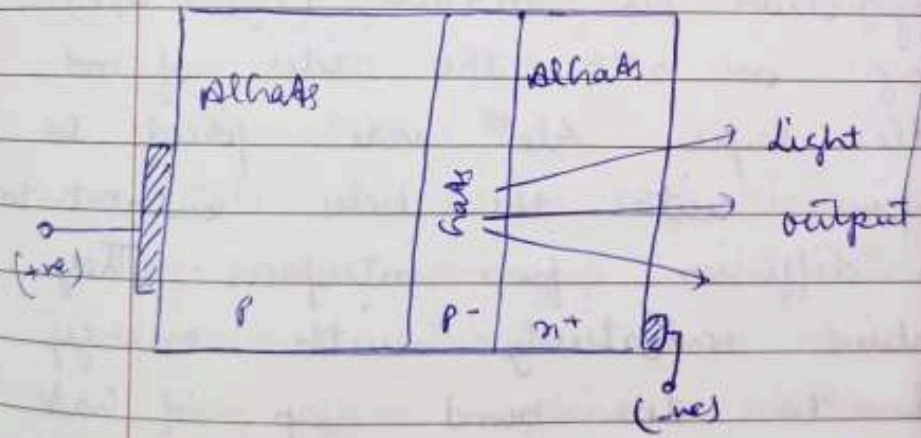 AlGaAs
AlGaAs
GaAs
Light
output
(+ve)
P
P-
n+
(-ve)